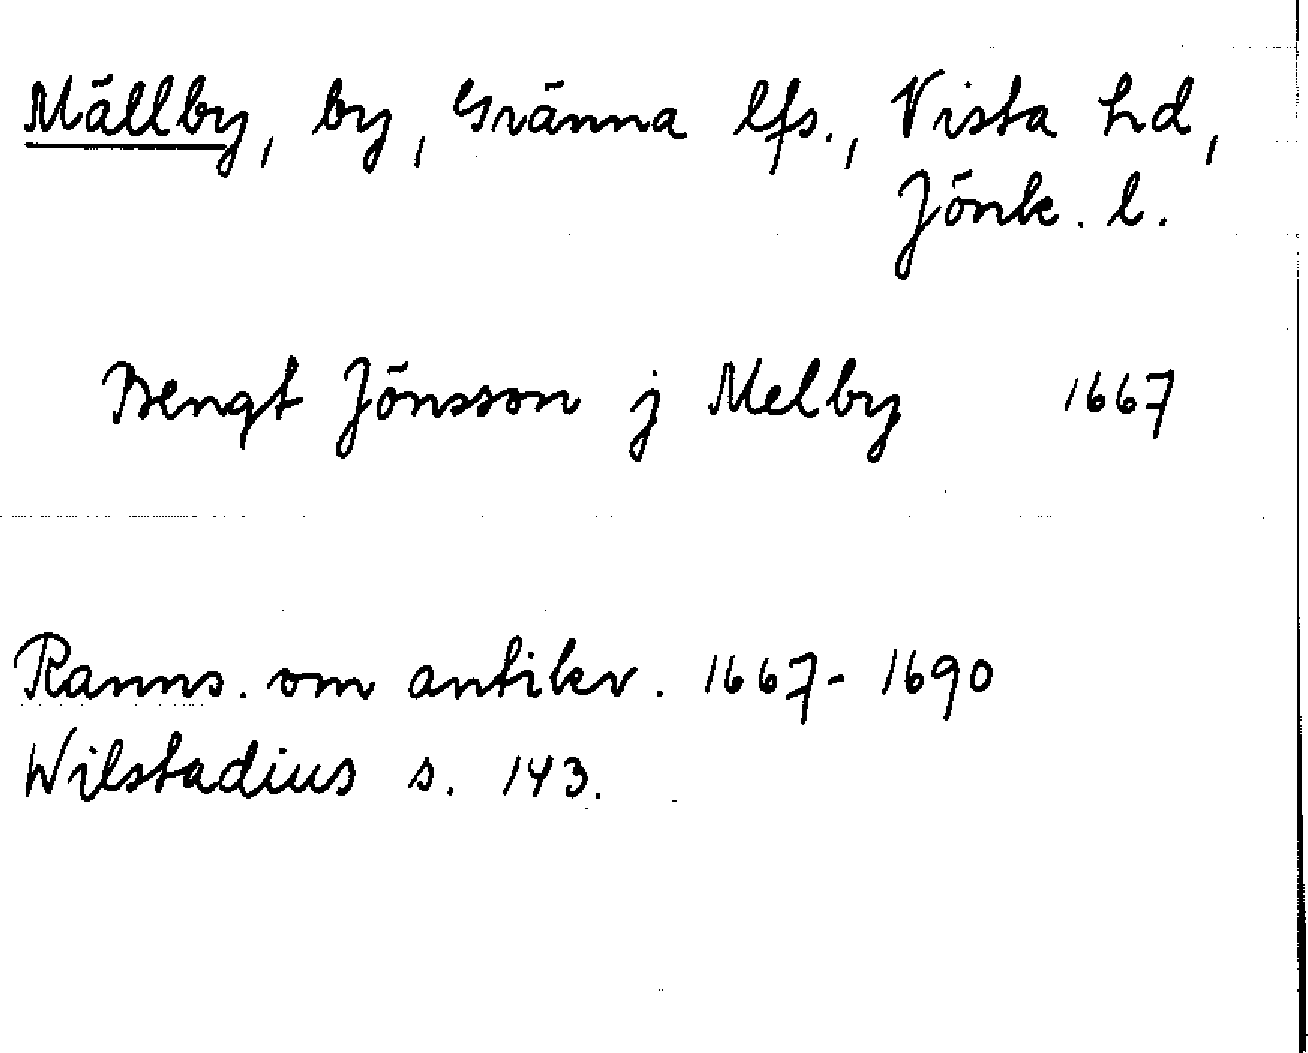 Mällby, by, Gränna lfs., Vista hd,
Jönk. l.
Bengt Jönsson j Melby 1667
Ranns. om antikv. 1667-1690
Wilstadius s. 143.